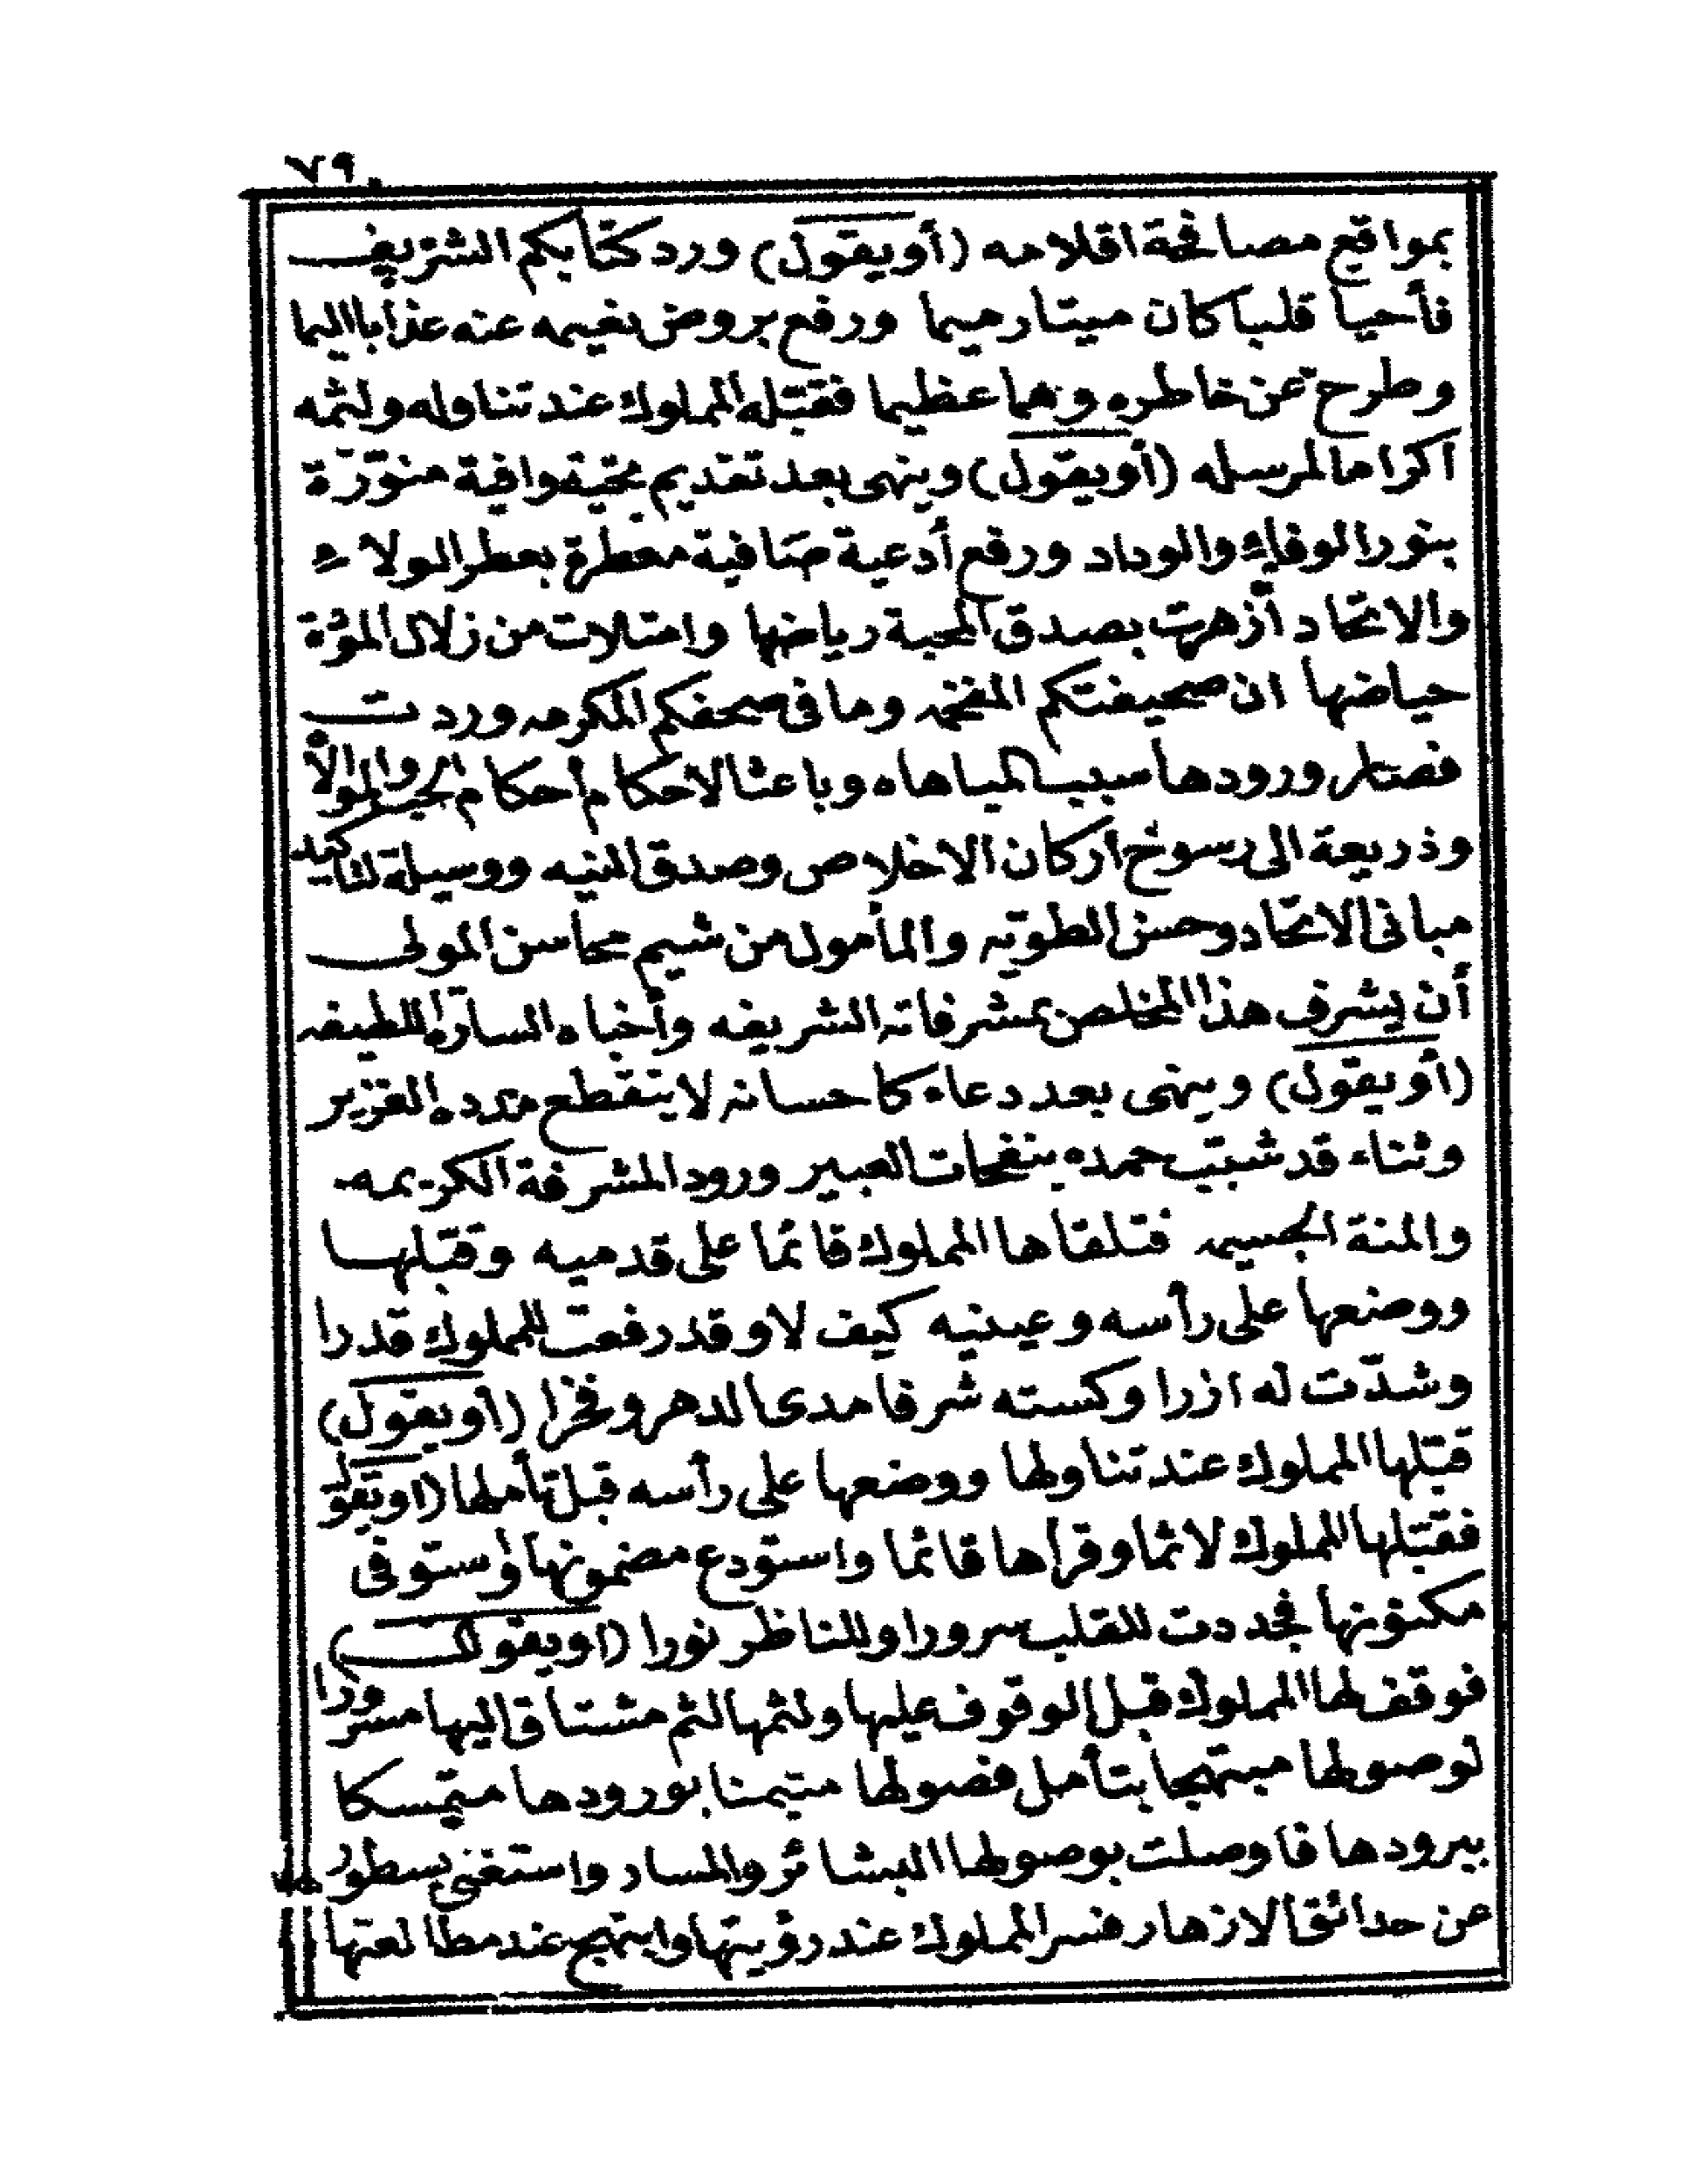 ٧٩
بمواقع مصافحة اقلامه (أويقول) ورد كتابكم الشريف
فأحيا قلبا كان ميتا رميما ورفع بروض نعيمه عنه عذابا اليما
وطرح عن خاطره وهما عظيما فقبّله المملوك عند تناوله ولثمه
اكراما لمرسله (أويقول) وينهى بعد تقديم تحية وافية منوّرة
بنور الوفاء والوداد ورفع أدعية صافية معطرة بعطر الولاء
والاتحاد أزهرت بصدق المحبة رياضها وامتلات من زلال المودّة
حياضها ان صحيفتكم المفخمه وما فى صحفكم المكرمه وردت
فصار ورودها سبب المباهاه وباعثا لاحكام أحكام الحب والموالاه
وذريعة الى رسوخ اركان الاخلاص وصدق النيه ووسيلة لتاكيد
مبانى الاتحاد وحسن الطويّه والمأمول من شيم محاسن المولى
أن يشرف هذا المخلص بمشرفاته الشريفه وأخباه السارة اللطيفه
(أويقول) وينهى بعد دعاء كاحسانه لا ينقطع مدده الغزير
وثناء قد شبّب حمده بنفحات العبير ورود المشرفة الكريمه
والمنة الجسيمه فتلقاها المملوك قائما على قدميه وقبّلها
ووضعها على رأسه وعينيه كيف لا وقد رفعت للمملوك قدرا
وشدّت له ازرا وكسته شرفا مدى الدهر وفخرا (أويقول)
قبّلها المملوك عند تناولها ووضعها على رأسه قبل تأملها (اويقول
فقبّلها المملوك لاثما وقرأها قائما واستودع مضمونها واستوفى
مكنونها فجددت للقلب سرورا وللناظر نورا (اويقول)
فوقف لها المملوك قبل الوقوف عليها ولثمها لثم مشتاق اليها مسرورا
لوصولها مبتهجا بتأمل فصولها متيمنا بورودها متمسكا
ببرودها فاوصلت بوصولها البشائر والمسار واستغنى بسطورها
عن حدائق الازهار فسر المملوك عند رؤيتها وابتهج عند مطالعتها